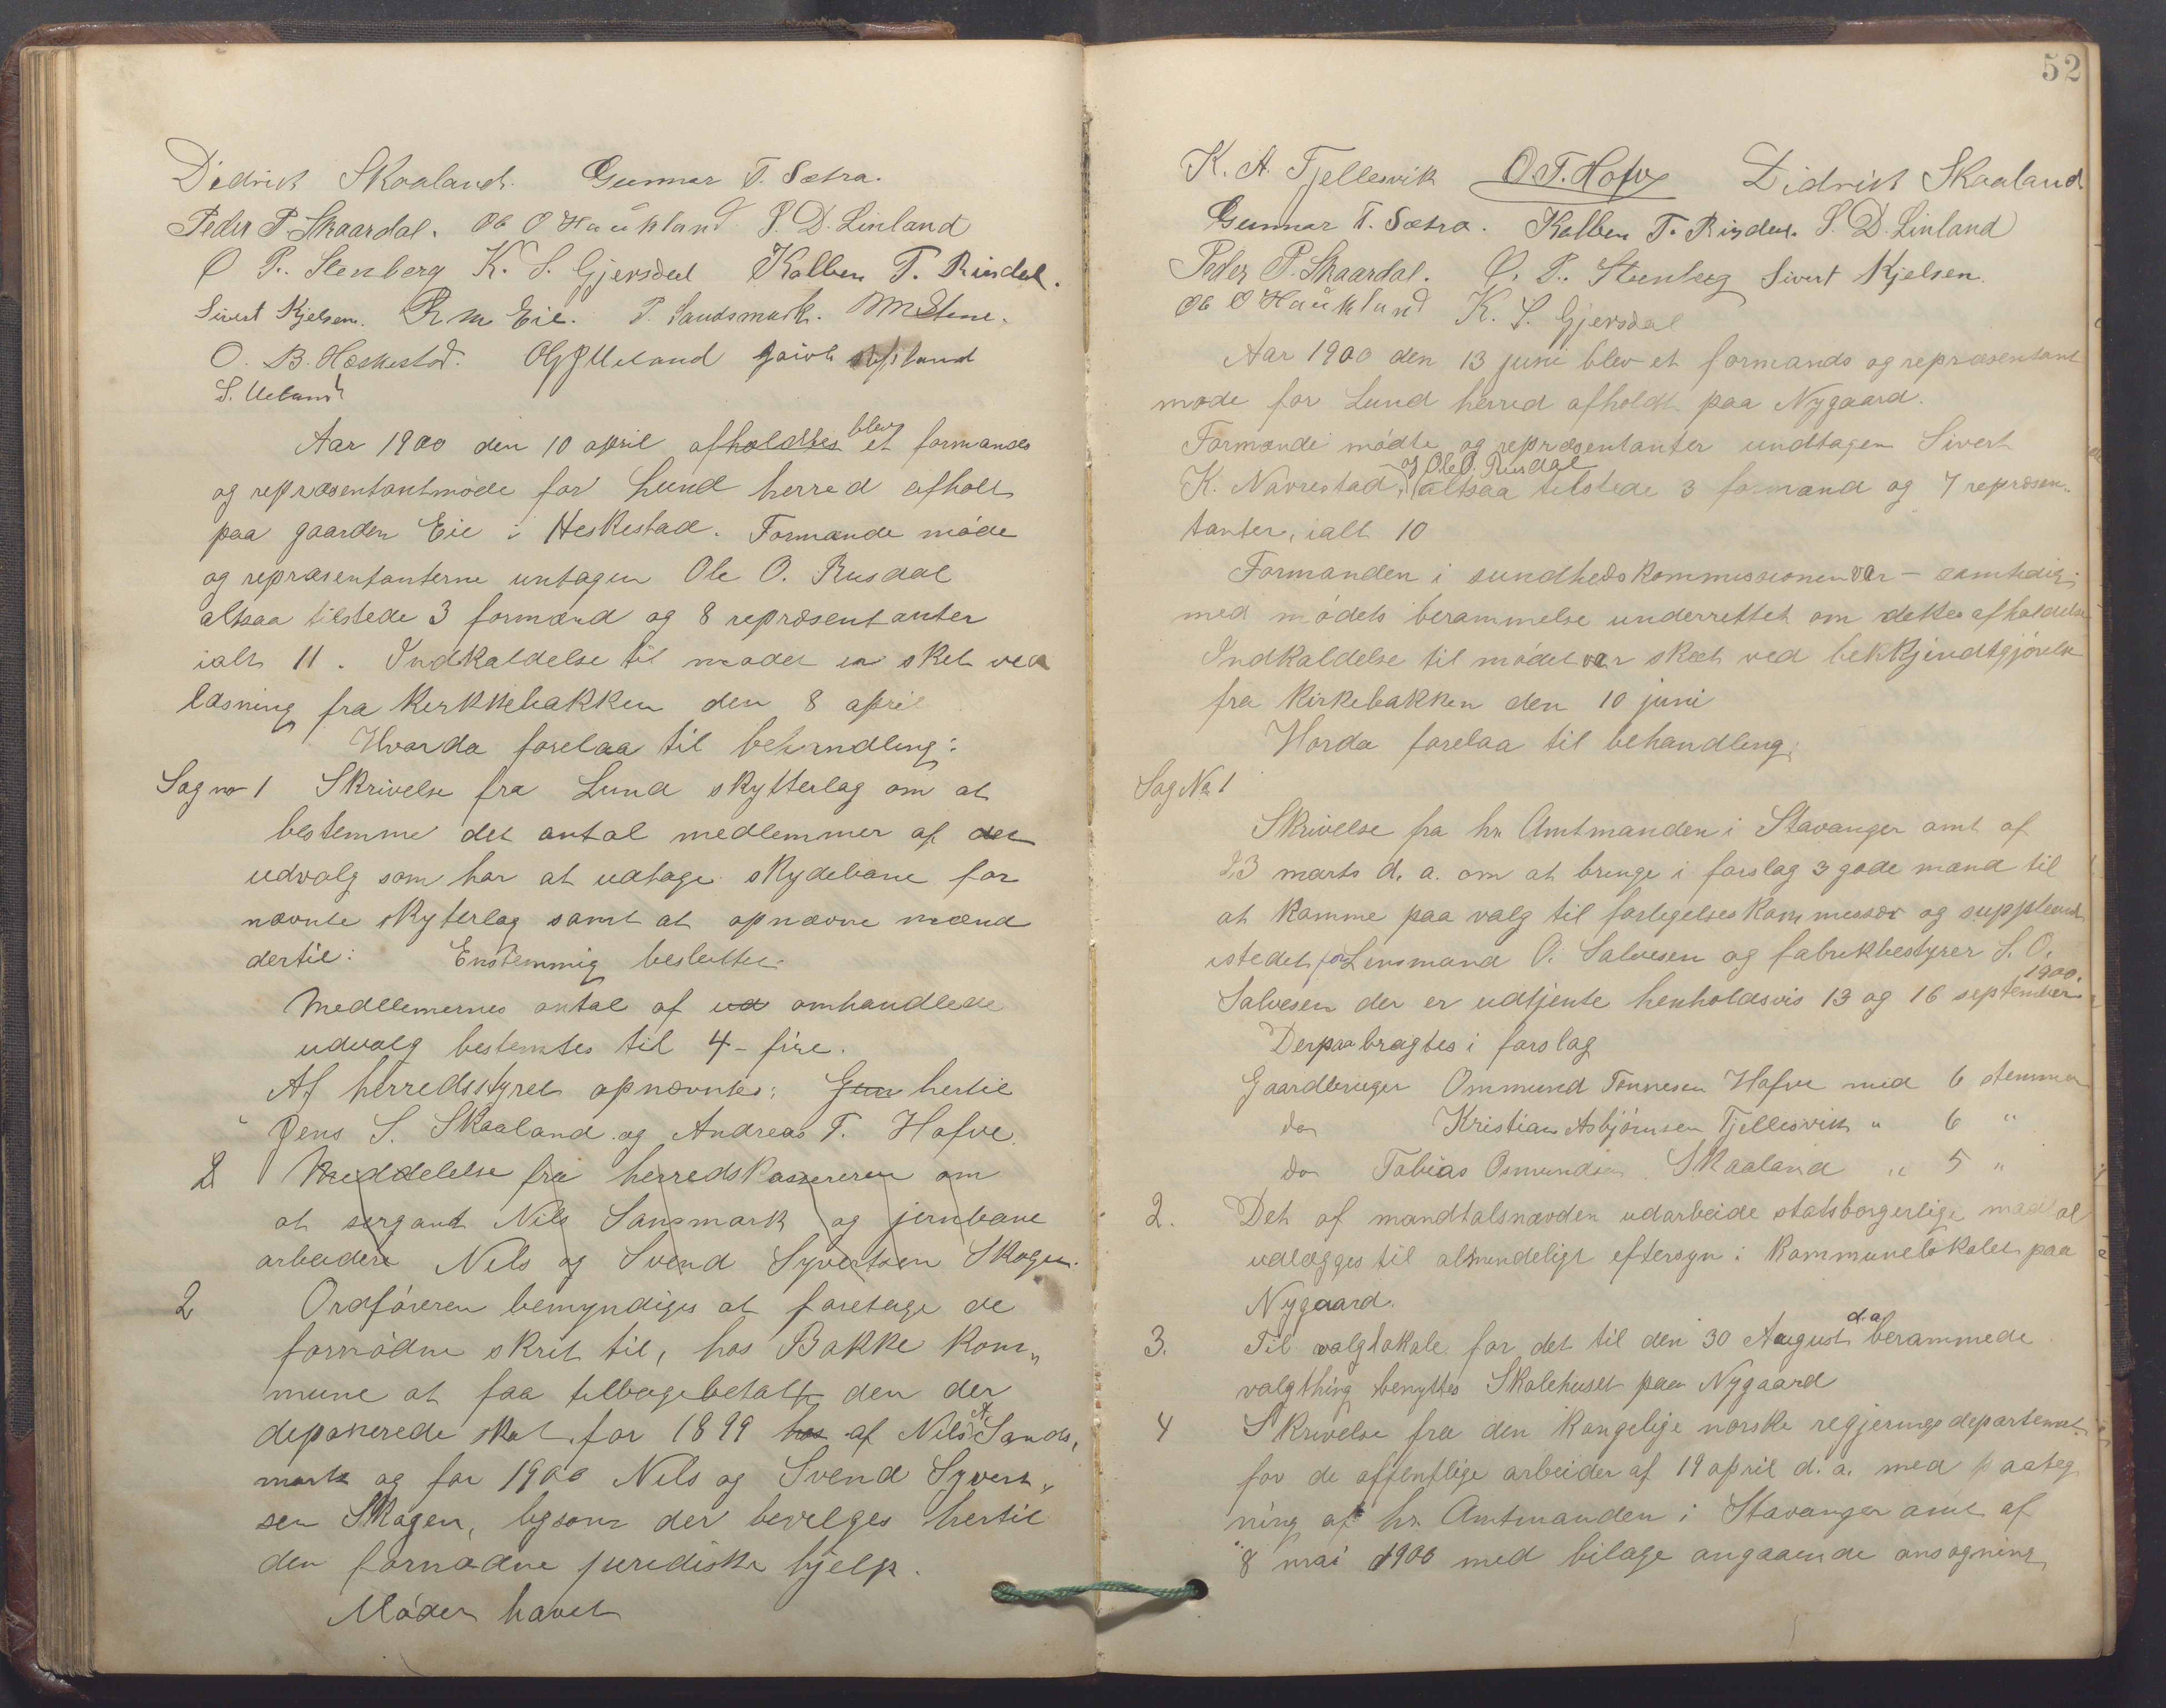 Didrik Skaaland. Gunnar T. Sætra.
Peder P. Skaardal. Ole O Haukland P. D. Linland
O P. Stenberg K. S. Gjersdal Kolben T. Rindal.
Sivert Kjelsen. R M Eie. P. Sandsmark. M Stene.
O. B. Heskestad. Ole J Ueland
S. Ueland
Aar 1900 den 10 april afholdtes blev et formands
og repræsentantmøde for Lund herred afholt
paa gaarden Eie i Heskestad. Formænde møde
og repræsentanterne untagen Ole O. Rusdal
altsaa tilstede 3 formænd og 8 repræsentanter
ialt 11. Indkaldelse til mødet er sket ved
læsning fra kirkkebakken den 8 april
Hvorda forelaa til behandling:
Sag no 1 Skrivelse fra Lund skytterlag om at
bestemme det antal medlemmer af det
udvalg som har at udtage skydebane for
nævnte skyterlag samt at opnævne mænd
dertil: Enstemmig besluttet.
Medlemernes antal af ud omhandlede
udvalg bestemtes til 4 - fire.
Af herredsstyret opnævntes: Gun hertil
Jens S. Skaaland og Andreas T. Hafve.
2 Meddelelse fra herredskassereren om
at sergant Nils Sansmark og jernbane
arbeidere Nils og Svend Syvertsen Skogen.
2 Ordføreren bemyndiges at foretage de
fornødne skrit til, hos Bakke kom„
mune at faa tilbagebetalt den der
deponerede skat for 1899 hos af Nils A. Sands„
mark og for 1900 Nils og Svend Syvert„
sen Skogen, ligsom der bevilges hertil
den fornødne juridiske hjelp.
Mødet hævet
52
K. A. Tjellesvik O. T. Hafve Didrik Skaaland
Gunnar T. Sætra. Kolben T. Rindal. P. D. Linland
Peder P. Skaardal. O. P. Stenberg Sivert Kjelsen.
Ole O Haukland K. S. Gjersdal
Aar 1900 den 13 juni blev et formands og repræsentant
møde for Lund herred afholdt paa Nygaard.
Formænde mødte og repræsentanter undtagen Sivert
K. Navrestad, og Ole O. Rusdal altsaa tilstede 3 formænd og 7 repræsen„
tanter, ialt 10
Formanden i sundhedskommissionen var - samtidig
med mødets berammelse underrettet om dettes afholdelse
Indkaldelse til mødet var skeet ved bekkjendtgjørelse
fra kirkebakken den 10 juni
Horda forelaa til behandling:
Sag No 1
Skrivelse fra hr. Amtmanden i Stavanger amt af
23 marts d. a. om at bringe i forslag 3 gode mænd til
at komme paa valg til forligelseskommissær og suppleant
istedet for Lensmand O. Salvesen og fabrikbestyrer S. O.
Salvesen der er udtjente henholdsvis 13 og 16 september 1900.
Derpaa bragtes i forslag
Gaardbruger Ommund Tønnesen Hafve med 6 stemmer
do Kristian Asbjørnsen Tjellesvik " 6 "
do Tobias Osmundsen Skaaland " 5 "
2. Det af mandtalsnævden udarbeide statsborgerlige
udlægges til almindeligt eftersyn i kommunelokalet paa
Nygaard.
3. Til valglokale for det til den 30 August d. a. berammede
valgthing benyttes Skolehuset paa Nygaard
4 Skrivelse fra den kongelige norske regjerings departement
for de offentlige arbeider af 19 april d. a. med paateg
ning af hr. Amtmanden i Stavanger amt af
8 mai 1900 med bilage angaaende ansøgning